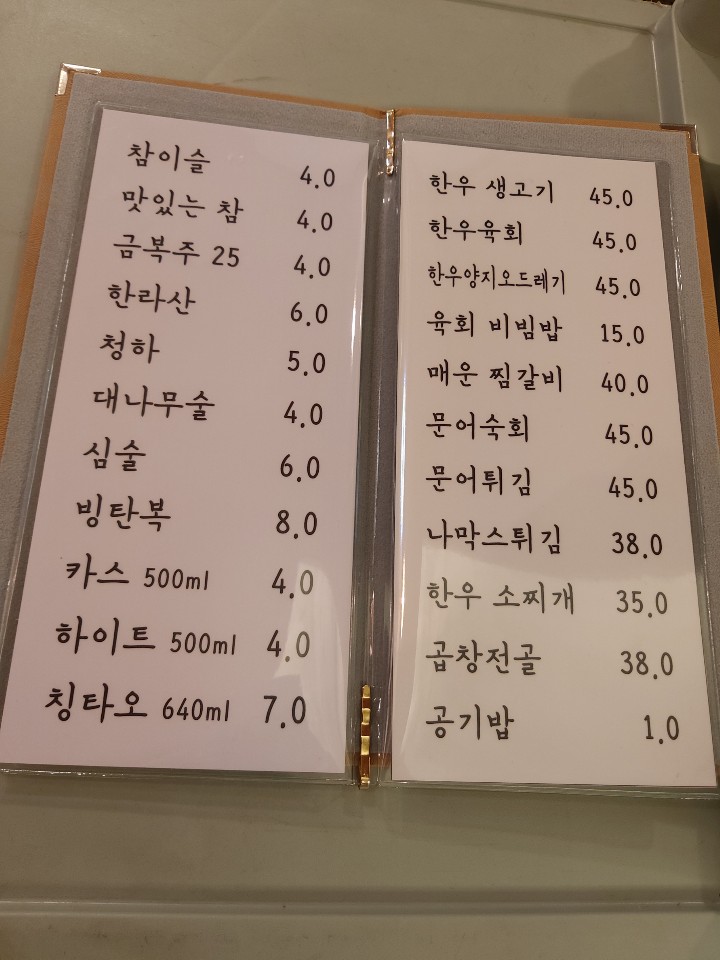 참이슬 4.0
맛있는 참 4.0
금복주 25 4.0
한라산 6.0
청하 5.0
대나무술 4.0
심술 6.0
빙탄복 8.0
카스 500ml 4.0
하이트 500ml 4.0
칭타오 640ml 7.0
한우 생고기 45.0
한우육회 45.0
한우양지오드레기 45.0
육회 비빔밥 15.0
매운 찜갈비 40.0
문어숙회 45.0
문어튀김 45.0
나막스튀김 38.0
한우 소찌개 35.0
곱창전골 38.0
공기밥 1.0